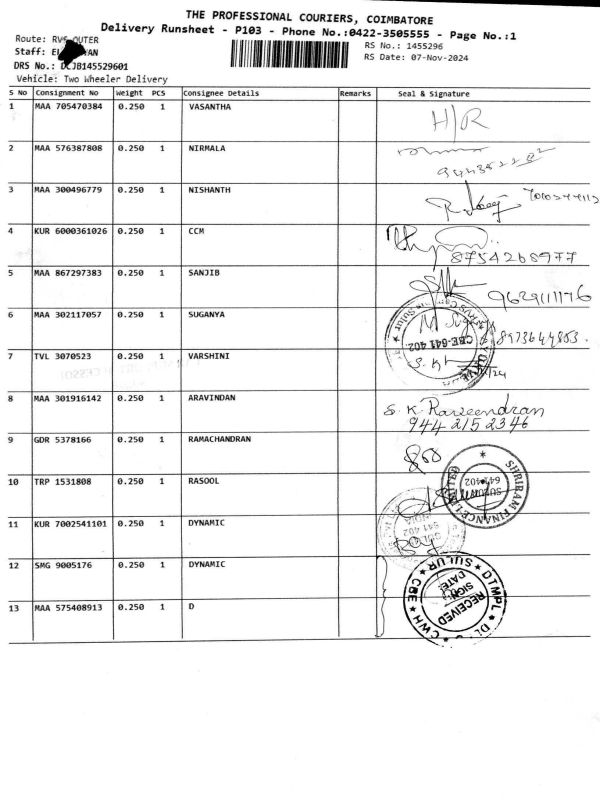 THE PROFESSIONAL COURIERS, COIMBATORE
Delivery Runsheet - P103 - Phone No.:0422-3505555 - Page No.:1
Route: RVS OUTER
RS No.: 1455296
Staff:
RS Date: 07-Nov-2024
DRS No.: DCJB145529601
Vehicle: Two Wheeler Delivery
S No Consignment No Weight PCS Consignee Details Remarks Seal & Signature
1 MAA 705470384 0.250 1 VASANTHA H/R
2 MAA 576387808 0.250 1 NIRMALA
3 MAA 300496779 0.250 1 NISHANTH
4 KUR 6000361026 0.250 1 CCM
8754268977
5 MAA 867297383 0.250 1 SANJIB
9629111176
6 MAA 302117057 0.250 1 SUGANYA
CBE-641 402
7 TVL 3070523 0.250 1 VARSHINI
8 MAA 301916142 0.250 1 ARAVINDAN
S. K. Raveendran
944 2152346
9 GDR 5378166 0.250 1 RAMACHANDRAN
10 TRP 1531808 0.250 1 RASOOL
SHRIRAM FINANCE LIMITED
SULUR
641 402
11 KUR 7002541101 0.250 1 DYNAMIC
641 402
12 SMG 9005176 0.250 1 DYNAMIC
DTMPL
SULUR
CBE
CWH
RECEIVED
SIGN
DATE
13 MAA 575408913 0.250 1 D